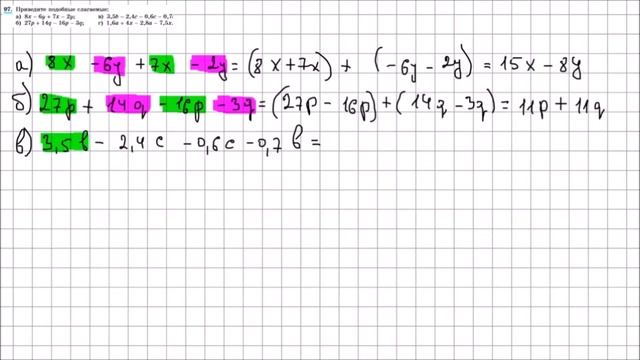 97. Приведите подобные слагаемые:
а) 8x − 6y + 7x − 2y; в) 3,5b − 2,4c − 0,6c − 0,7b;
б) 27p + 14q − 16p − 3q; г) 1,6a + 4x − 2,8a − 7,5x.
а) 8x − 6y + 7x − 2y = (8x + 7x) + (−6y − 2y) = 15x − 8y
б) 27p + 14q − 16p − 3q = (27p − 16p) + (14q − 3q) = 11p + 11q
в) 3,5b − 2,4c − 0,6c − 0,7b =